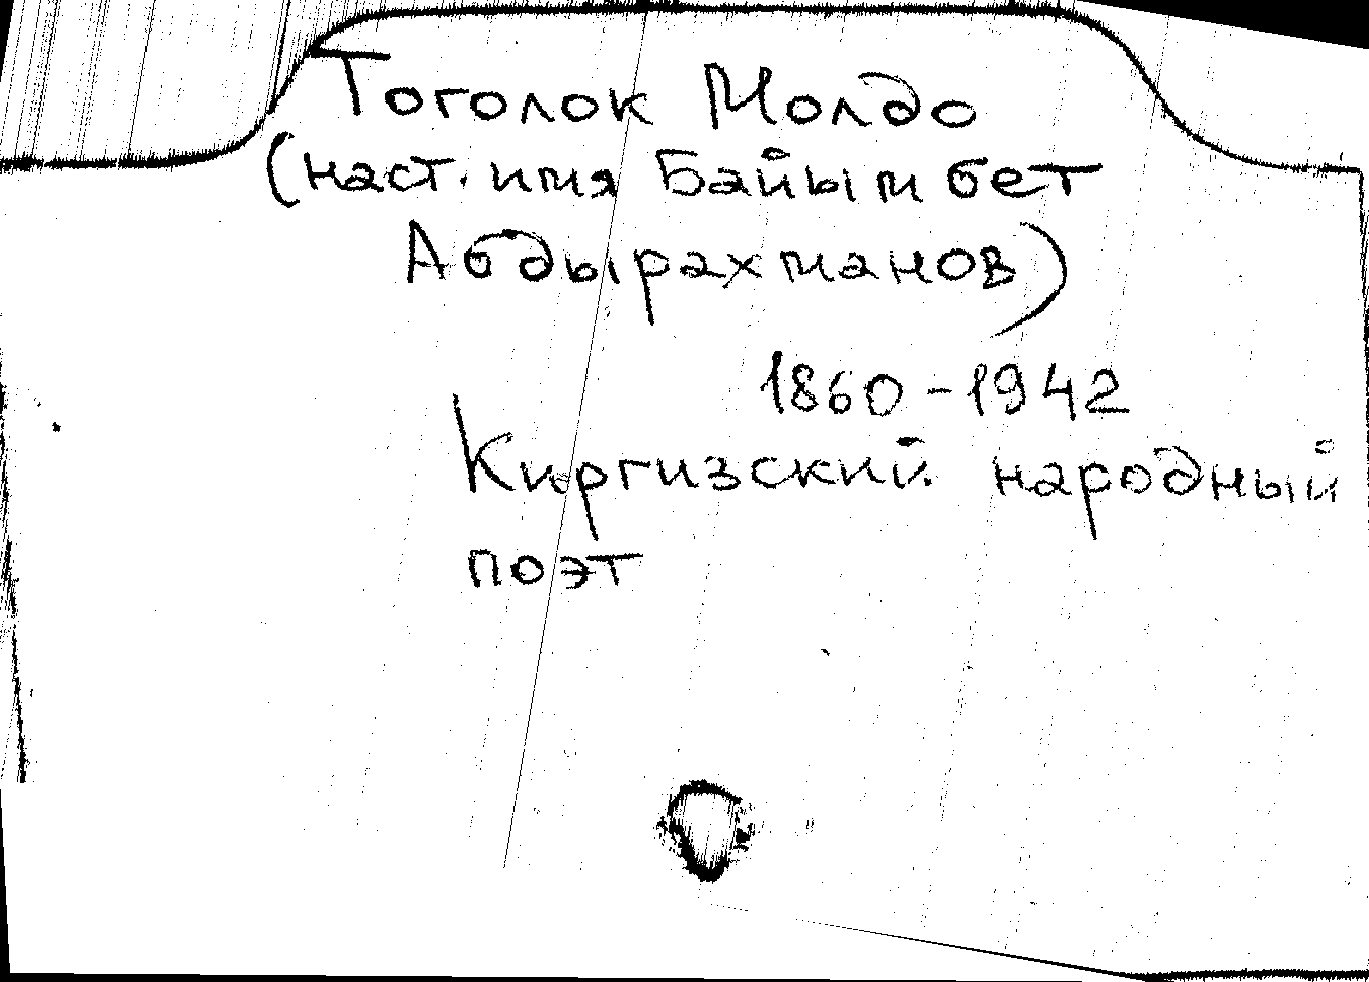 Тоголок Молдо
(наст. имя Байымбет
Абдырахманов)
1860-1942
Киргизский народный
поэт